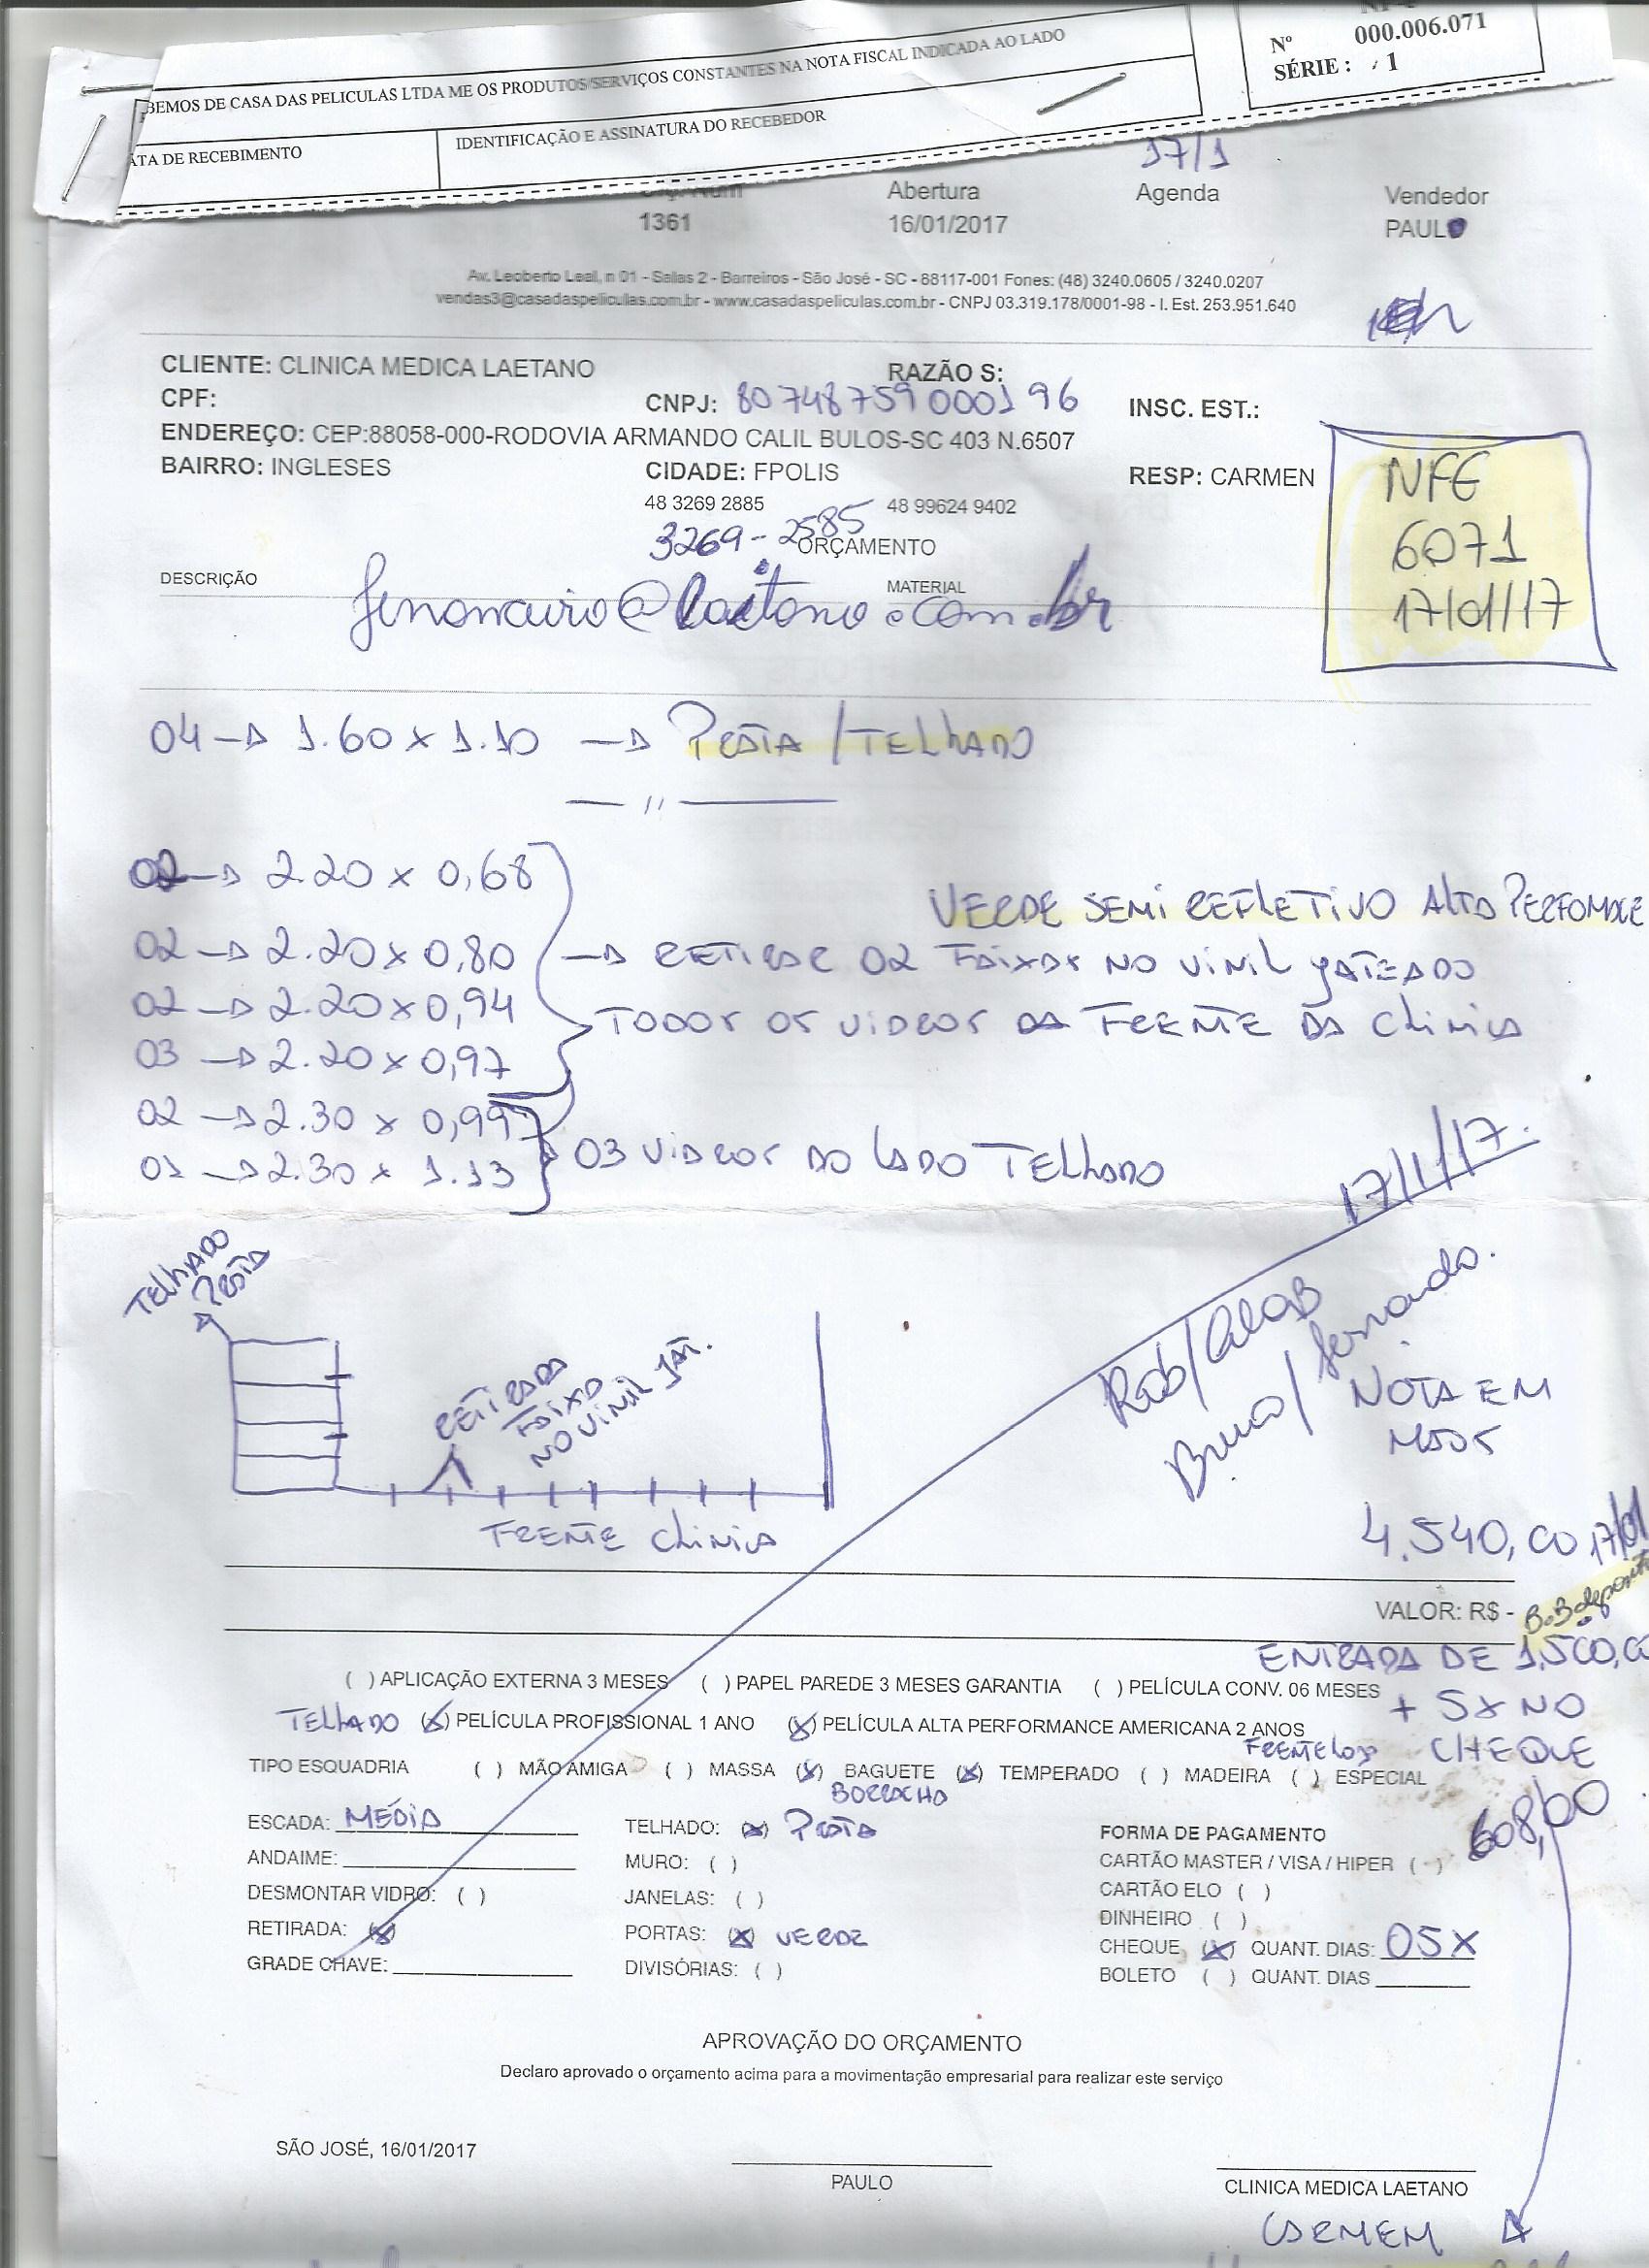 BEMOS DE CASA DAS PELICULAS LTDA ME OS PRODUTOS/SERVIÇOS CONSTANTES NA NOTA FISCAL INDICADA AO LADO
ATA DE RECEBIMENTO
IDENTIFICAÇÃO E ASSINATURA DO RECEBEDOR
Nº 000.006.071
SÉRIE : 1
17/1
Num Abertura Agenda Vendedor
1361 16/01/2017 PAULO
Av. Leoberto Leal, n 01 - Salas 2 - Barreiros - São José - SC - 88117-001 Fones: (48) 3240.0605 / 3240.0207
vendas3@casadaspeliculas.com.br - www.casadaspeliculas.com.br - CNPJ 03.319.178/0001-98 - I. Est. 253.951.640
CLIENTE: CLINICA MEDICA LAETANO RAZÃO S:
CPF: CNPJ: 80748759000196 INSC. EST.:
ENDEREÇO: CEP:88058-000-RODOVIA ARMANDO CALIL BULOS-SC 403 N.6507
BAIRRO: INGLESES CIDADE: FPOLIS RESP: CARMEN
48 3269 2885 48 99624 9402
3269-2585
ORÇAMENTO
DESCRIÇÃO MATERIAL
NFE
6071
17/01/17
04 → 1.60 x 1.10 → PRATA / TELHADO
— 11 —
02 → 2.20 x 0,68
VERDE SEMI REFLETIVO ALTA
02 → 2.20 x 0,80 → RETIRAR 02 FAIXAS NO VINIL JATEADO
02 → 2.20 x 0,94 TODOS OS VIDROS DA FRENTE DA CLINICA
03 → 2.20 x 0,97
02 → 2.30 x 0,99
01 → 2.30 x 1.13 03 VIDROS DO LADO TELHADO
17/1/17.
TELHADO
PRATA
RETIRADA
FAIXA
NO VINIL JAT.
FRENTE CLINICA
Bruno / Fernando.
NOTA EM
4.540,00 17/01
VALOR: R$ -
ENTRADA DE 1.500,00
( ) APLICAÇÃO EXTERNA 3 MESES ( ) PAPEL PAREDE 3 MESES GARANTIA ( ) PELÍCULA CONV. 06 MESES
+ 5X NO
CHEQUE
608,00
TELHADO (X) PELÍCULA PROFISSIONAL 1 ANO (X) PELÍCULA ALTA PERFORMANCE AMERICANA 2 ANOS
TIPO ESQUADRIA ( ) MÃO AMIGA ( ) MASSA (X) BAGUETE (X) TEMPERADO ( ) MADEIRA ( ) ESPECIAL
BORRACHA
ESCADA: MÉDIA
ANDAIME:
DESMONTAR VIDRO: ( )
RETIRADA: (X)
GRADE CHAVE:
TELHADO: (X) PRATA
MURO: ( )
JANELAS: ( )
PORTAS: (X) VERDE
DIVISÓRIAS: ( )
FORMA DE PAGAMENTO
CARTÃO MASTER / VISA / HIPER ( )
CARTÃO ELO ( )
DINHEIRO ( )
CHEQUE (X) QUANT. DIAS: 05X
BOLETO ( ) QUANT. DIAS
APROVAÇÃO DO ORÇAMENTO
Declaro aprovado o orçamento acima para a movimentação empresarial para realizar este serviço
SÃO JOSÉ, 16/01/2017
PAULO
CLINICA MEDICA LAETANO
CARMEM